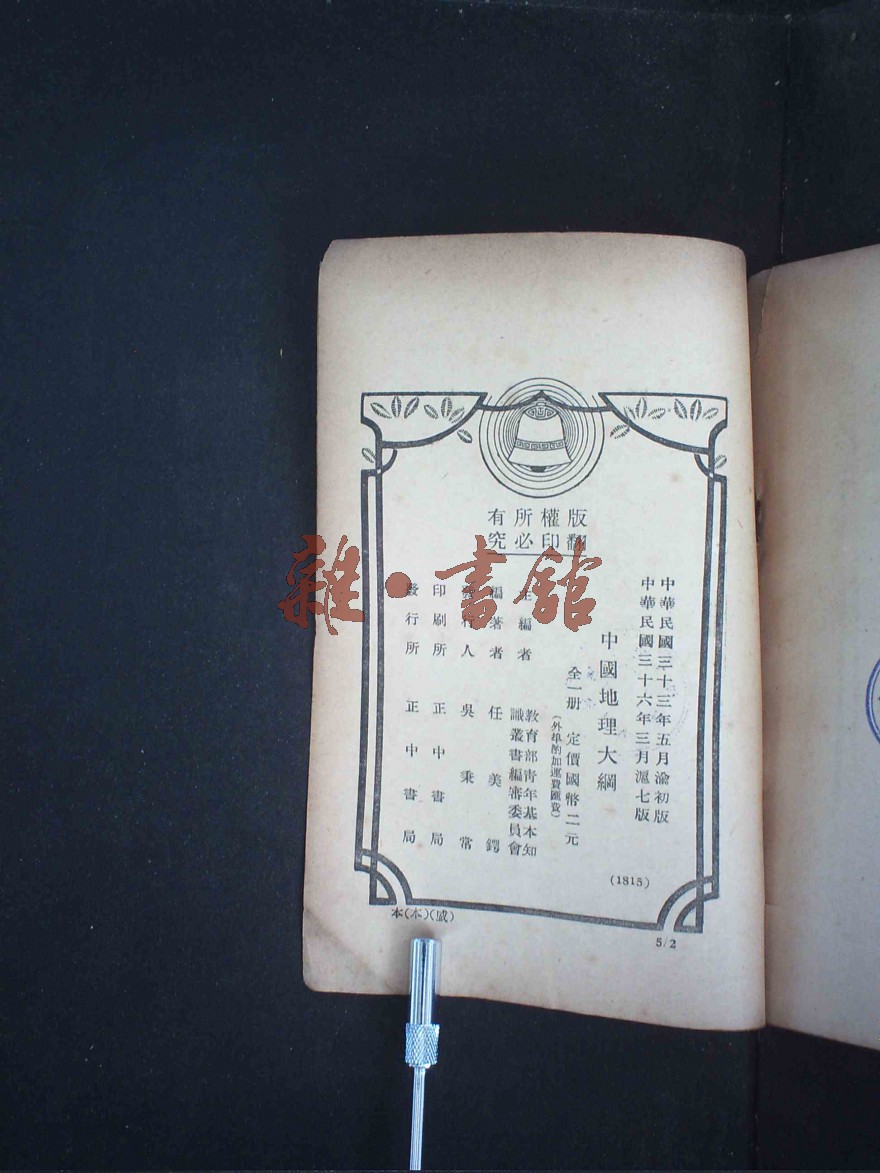 版權所有
翻印必究
中華民國三十三年五月渝初版
中華民國三十六年三月滬七版
中國地理大綱
全一册 定價國幣二元
(外埠酌加運費匯費)
主編者 教育部青年基本知識叢書編審委員會
編著者 任美鍔
發行人 吳秉常
印刷所 正中書局
發行所 正中書局
(1815)
本(本)(盛)
5/2
雜·書館